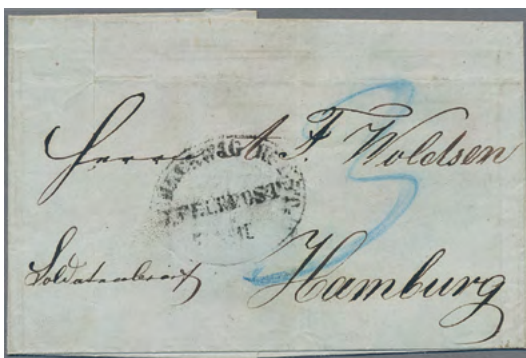 Herrn A. F. Woldsen
FELDPOST
Soldatenbrief
Hamburg
3